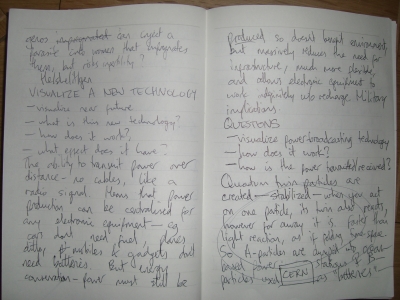 can expect a
favorite
that
these, but
VISUALIZE A NEW TECHNOLOGY
- visualize near future
- what is this new technology?
- how does it work?
- what effect does it have?
The ability to transmit power over
distance - no cables, like a
radio signal. Means that power
production can be centralised for
any electronic equipment - eg
cars don't need fuel, planes
ditto, & mobiles & gadgets don't
need batteries. But energy
conservation - power must still be
produced so doesn't
but massively reduces the need for
infrastructure, much more flexible,
and allows electronic equipment to
work infinitely w/o recharge. Military
implications.
QUESTIONS
- visualize power broadcasting technology
- how does it work?
- how is the power transmitted/received?
Quantum twin-particles are
created - stabilized - when you act
on one particle, its twin also reacts,
however far away it is, faster than
light reaction, as if
So A-particles are
based power
CERN
particles used as "batteries"